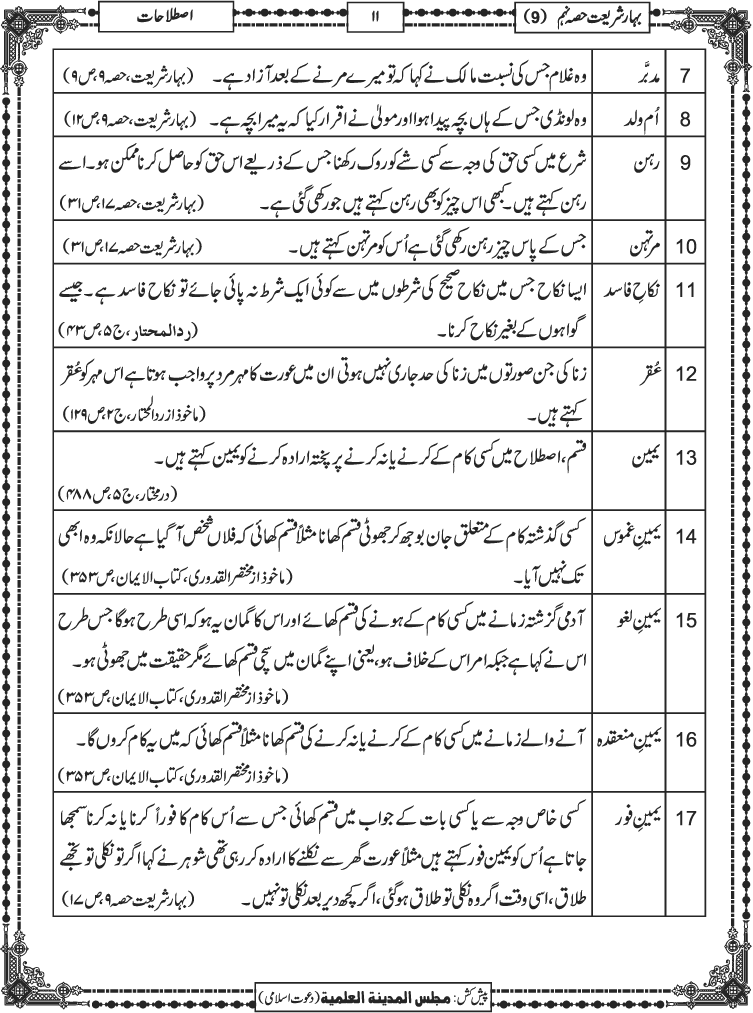 بہارِ شریعت حصہ نہم (9) ۱۱ اصطلاحات
7 مدبَّر وہ غلام جس کی نسبت مالک نے کہا کہ تو میرے مرنے کے بعد آزاد ہے۔ (بہارشریعت،حصہ۹،ص۹)
8 اُم ولد وہ لونڈی جس کے ہاں بچہ پیدا ہوا اور مولیٰ نے اقرار کیا کہ یہ میرا بچہ ہے۔ (بہارشریعت،حصہ۹،ص۱۲)
9 رہن شرع میں کسی حق کی وجہ سے کسی شے کو روک رکھنا جس کے ذریعے اس حق کو حاصل کرنا ممکن ہو۔اسے
رہن کہتے ہیں۔کبھی اس چیز کو بھی رہن کہتے ہیں جو رکھی گئی ہے۔ (بہارشریعت،حصہ۱۷،ص۳۱)
10 مرتہن جس کے پاس چیز رہن رکھی گئی ہے اُس کو مرتہن کہتے ہیں۔ (بہارشریعت حصہ۱۷،ص۳۱)
11 نکاحِ فاسد ایسا نکاح جس میں نکاحِ صحیح کی شرطوں میں سے کوئی ایک شرط نہ پائی جائے تو نکاح فاسد ہے۔جیسے
گواہوں کے بغیر نکاح کرنا۔ (ردالمحتار،ج۵،ص۴۳)
12 عُقر زنا کی جن صورتوں میں زنا کی حد جاری نہیں ہوتی ان میں عورت کا مہر مرد پر واجب ہوتا ہے اس مہر کو عُقر
کہتے ہیں۔ (ماخوذ از ردالمحتار،ج۲،ص۱۲۹)
13 یمین قسم،اصطلاح میں کسی کام کے کرنے یا نہ کرنے پر پختہ ارادہ کرنے کو یمین کہتے ہیں۔
(درمختار،ج۵،ص۴۸۸)
14 یمینِ غموس کسی گذشتہ کام کے متعلق جان بوجھ کر جھوٹی قسم کھانا مثلاً قسم کھائی کہ فلاں شخص آ گیا ہے حالانکہ وہ ابھی
تک نہیں آیا۔ (ماخوذ از مختصر القدوری،کتاب الایمان،ص۳۵۳)
15 یمینِ لغو آدمی گزشتہ زمانے میں کسی کام کے ہونے کی قسم کھائے اور اس کا گمان یہ ہو کہ اسی طرح ہوگا جس طرح
اس نے کہا ہے جبکہ امر اس کے خلاف ہو،یعنی اپنے گمان میں سچی قسم کھائے مگر حقیقت میں جھوٹی ہو۔
(ماخوذ از مختصر القدوری،کتاب الایمان،ص۳۵۳)
16 یمینِ منعقدہ آنے والے زمانے میں کسی کام کے کرنے یا نہ کرنے کی قسم کھانا مثلاً قسم کھائی کہ میں یہ کام کروں گا۔
(ماخوذ از مختصر القدوری،کتاب الایمان،ص۳۵۳)
17 یمینِ فور کسی خاص وجہ سے یا کسی بات کے جواب میں قسم کھائی جس سے اُس کام کا فوراً کرنا یا نہ کرنا سمجھا
جاتا ہے اُس کو یمینِ فور کہتے ہیں مثلاً عورت گھر سے نکلنے کا ارادہ کر رہی تھی شوہر نے کہا اگر تو نکلی تو تجھے
طلاق،اسی وقت اگر وہ نکلی تو طلاق ہو گئی،اگر کچھ دیر بعد نکلی تو نہیں۔ (بہارشریعت حصہ۹،ص۱۷)
پیش کش: مجلس المدینة العلمیة (دعوتِ اسلامی)